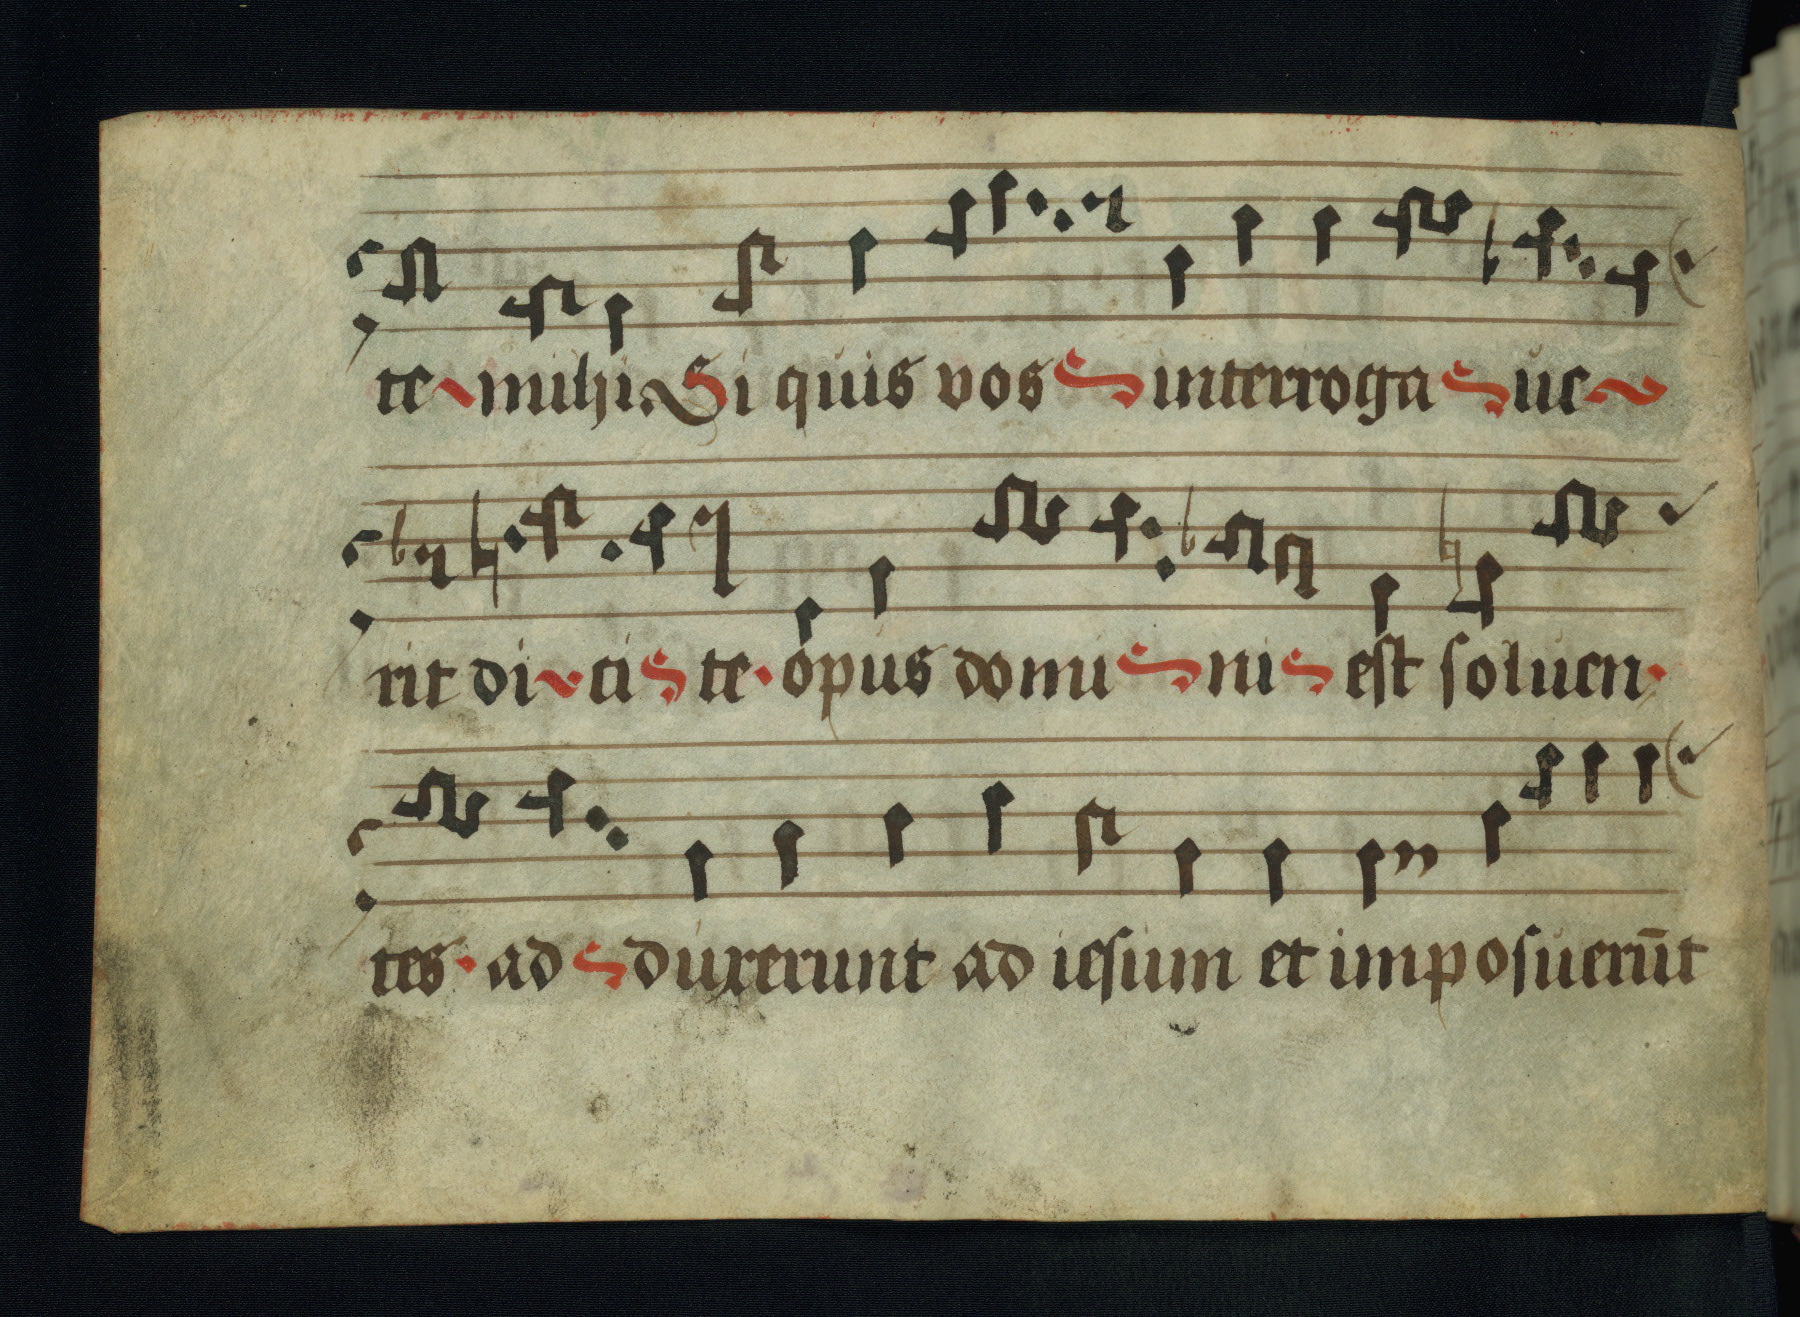 te mihi. Si quis vos interroga ue
rit di ci te · opus domi ni est soluen
tes · ad duxerunt ad iesum et imposuerūt